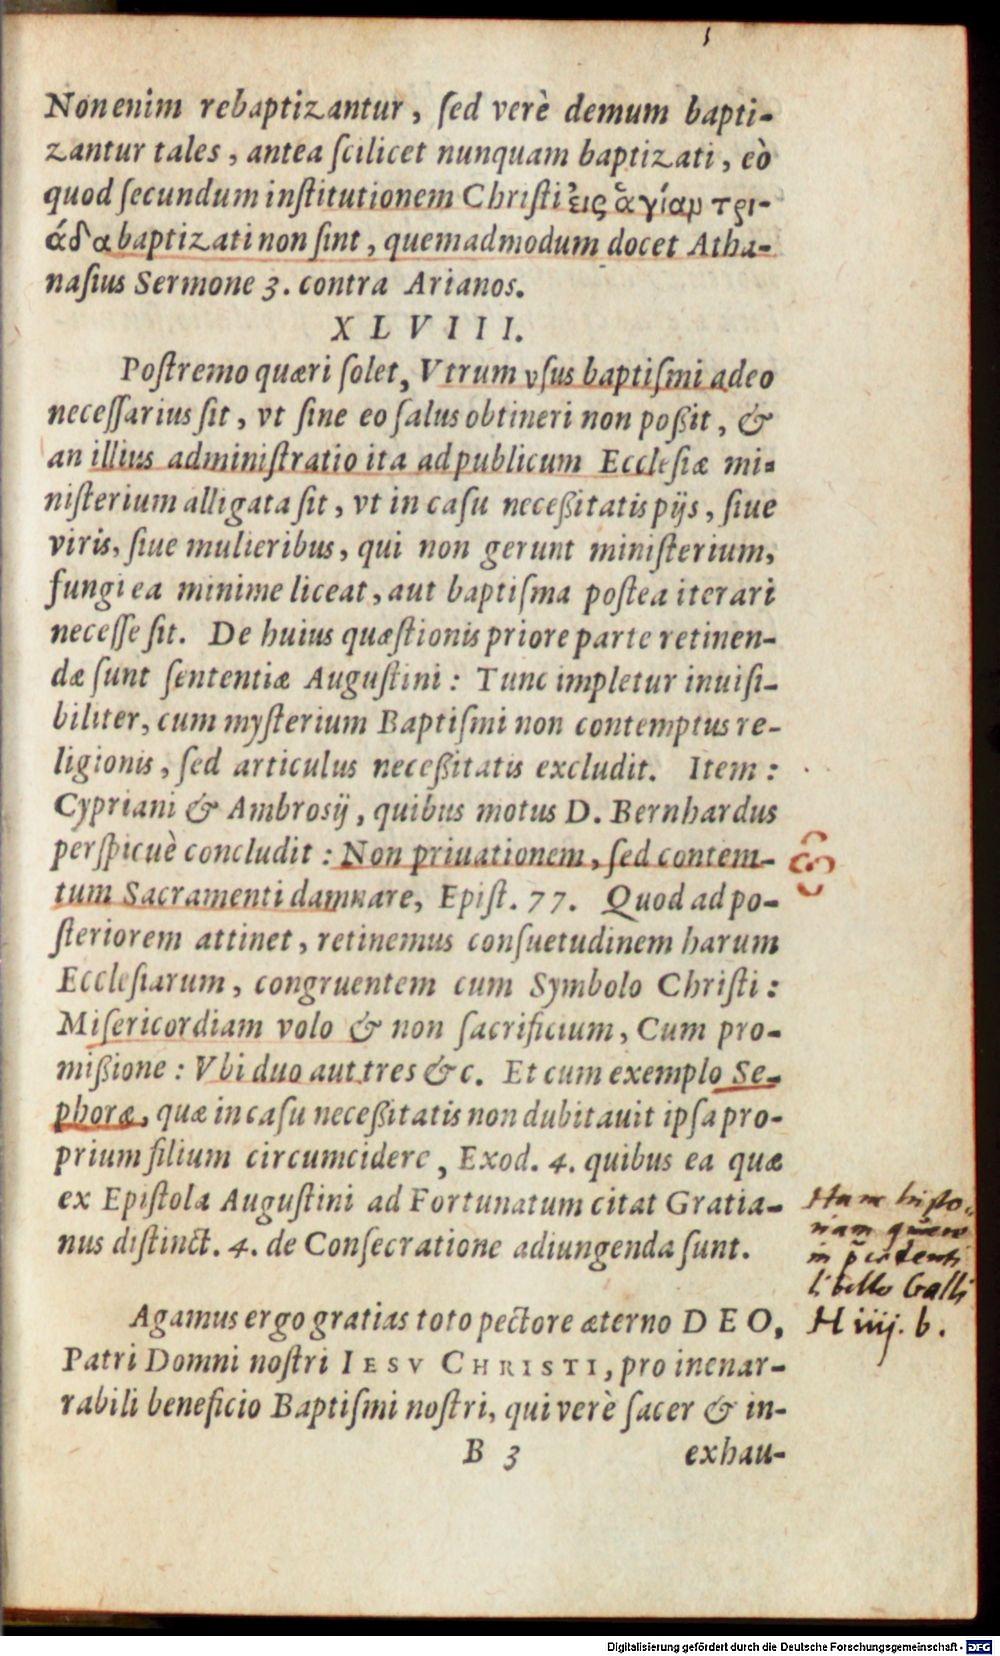 Non enim rebaptizantur, ſed verè demum bapti-
zantur tales, antea ſcilicet nunquam baptizati, eò
quod ſecundum inſtitutionem Chriſti εἰς ἁγίαμ τρι-
άδα baptizati non ſint, quemadmodum docet Atha-
naſius Sermone 3. contra Arianos.
XLVIII.
Poſtremo quæri ſolet, Vtrum vſus baptiſmi adeo
neceſſarius ſit, vt ſine eo ſalus obtineri non poßit, &
an illius adminiſtratio ita ad publicum Eccleſiæ mi-
niſterium alligata ſit, vt in caſu neceßitatis pijs, ſiue
viris, ſiue mulieribus, qui non gerunt miniſterium,
fungi ea minime liceat, aut baptiſma poſtea iterari
neceſſe ſit. De huius quæſtionis priore parte retinen-
dæ ſunt ſententiæ Auguſtini: Tunc impletur inuiſi-
biliter, cum myſterium Baptiſmi non contemptus re-
ligionis, ſed articulus neceßitatis excludit. Item:
Cypriani & Ambroſij, quibus motus D. Bernhardus
perſpicuè concludit: Non priuationem, ſed contem-
tum Sacramenti damnare, Epiſt. 77. Quod ad po-
ſteriorem attinet, retinemus conſuetudinem harum
Eccleſiarum, congruentem cum Symbolo Chriſti:
Miſericordiam volo & non ſacrificium, Cum pro-
mißione: Vbi duo aut tres &c. Et cum exemplo Se-
phoræ, quæ in caſu neceßitatis non dubitauit ipſa pro-
prium filium circumcidere, Exod. 4. quibus ea quæ
ex Epiſtola Auguſtini ad Fortunatum citat Gratia-
nus diſtinct. 4. de Conſecratione adiungenda ſunt.
Hanc histo-
riam
in
libello Galli
H iiij. b.
Agamus ergo gratias toto pectore æterno DEO,
Patri Domni noſtri IESV CHRISTI, pro inenar-
rabili beneficio Baptiſmi noſtri, qui verè ſacer & in-
B 3 exhau-
Digitalisierung gefördert durch die Deutsche Forschungsgemeinschaft - DFG